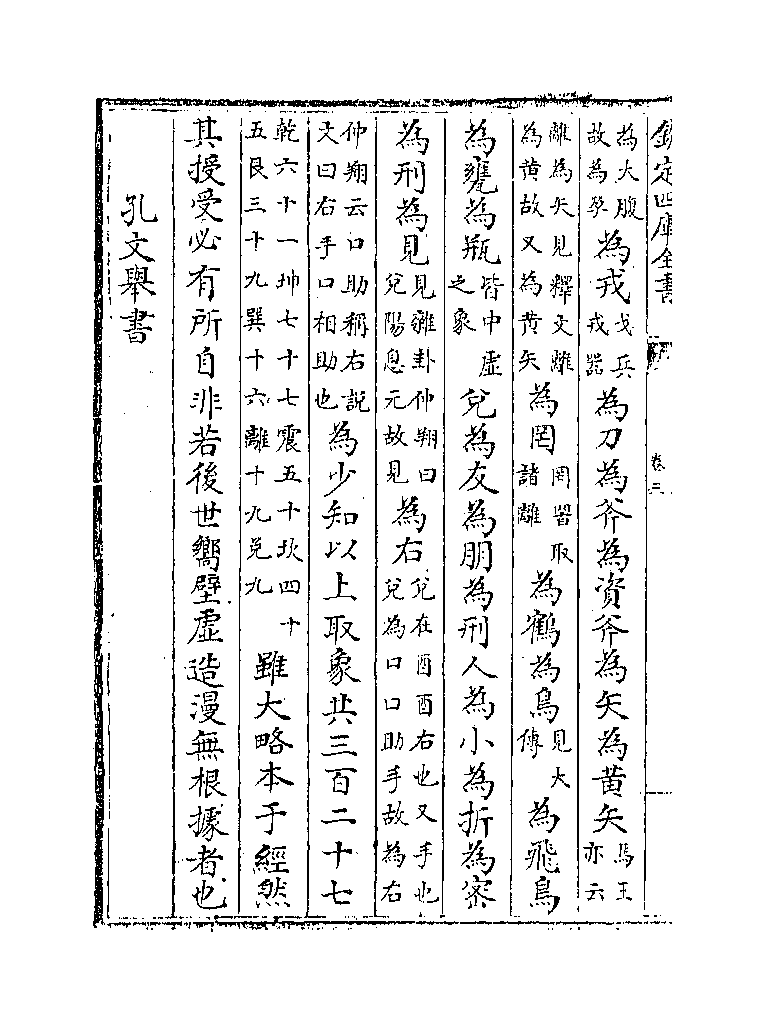 欽定四庫全書 卷三
為大腹故為孕為戎戈兵戎器為刀為斧為資斧為矢為黄矢馬王亦云
離為矢見釋文離為黄故又為黄矢為罔罔罟取諸離為鶴為鳥見大傳為飛鳥
為甕為瓶皆中虛之象兌為友為朋為刑人為小為折為密
為刑為見見雜卦仲翔曰兌陽息元故見為右兌在酉酉右也又手也兌為口口助手故為右
仲翔云口助稱右説文曰右手口相助也為少知以上取象共三百二十七
乾六十一坤七十七震五十坎四十五艮三十九巽十六離十九兌九雖大略本于經然
其授受必有所自非若後世嚮壁虛造漫無根據者也
孔文舉書